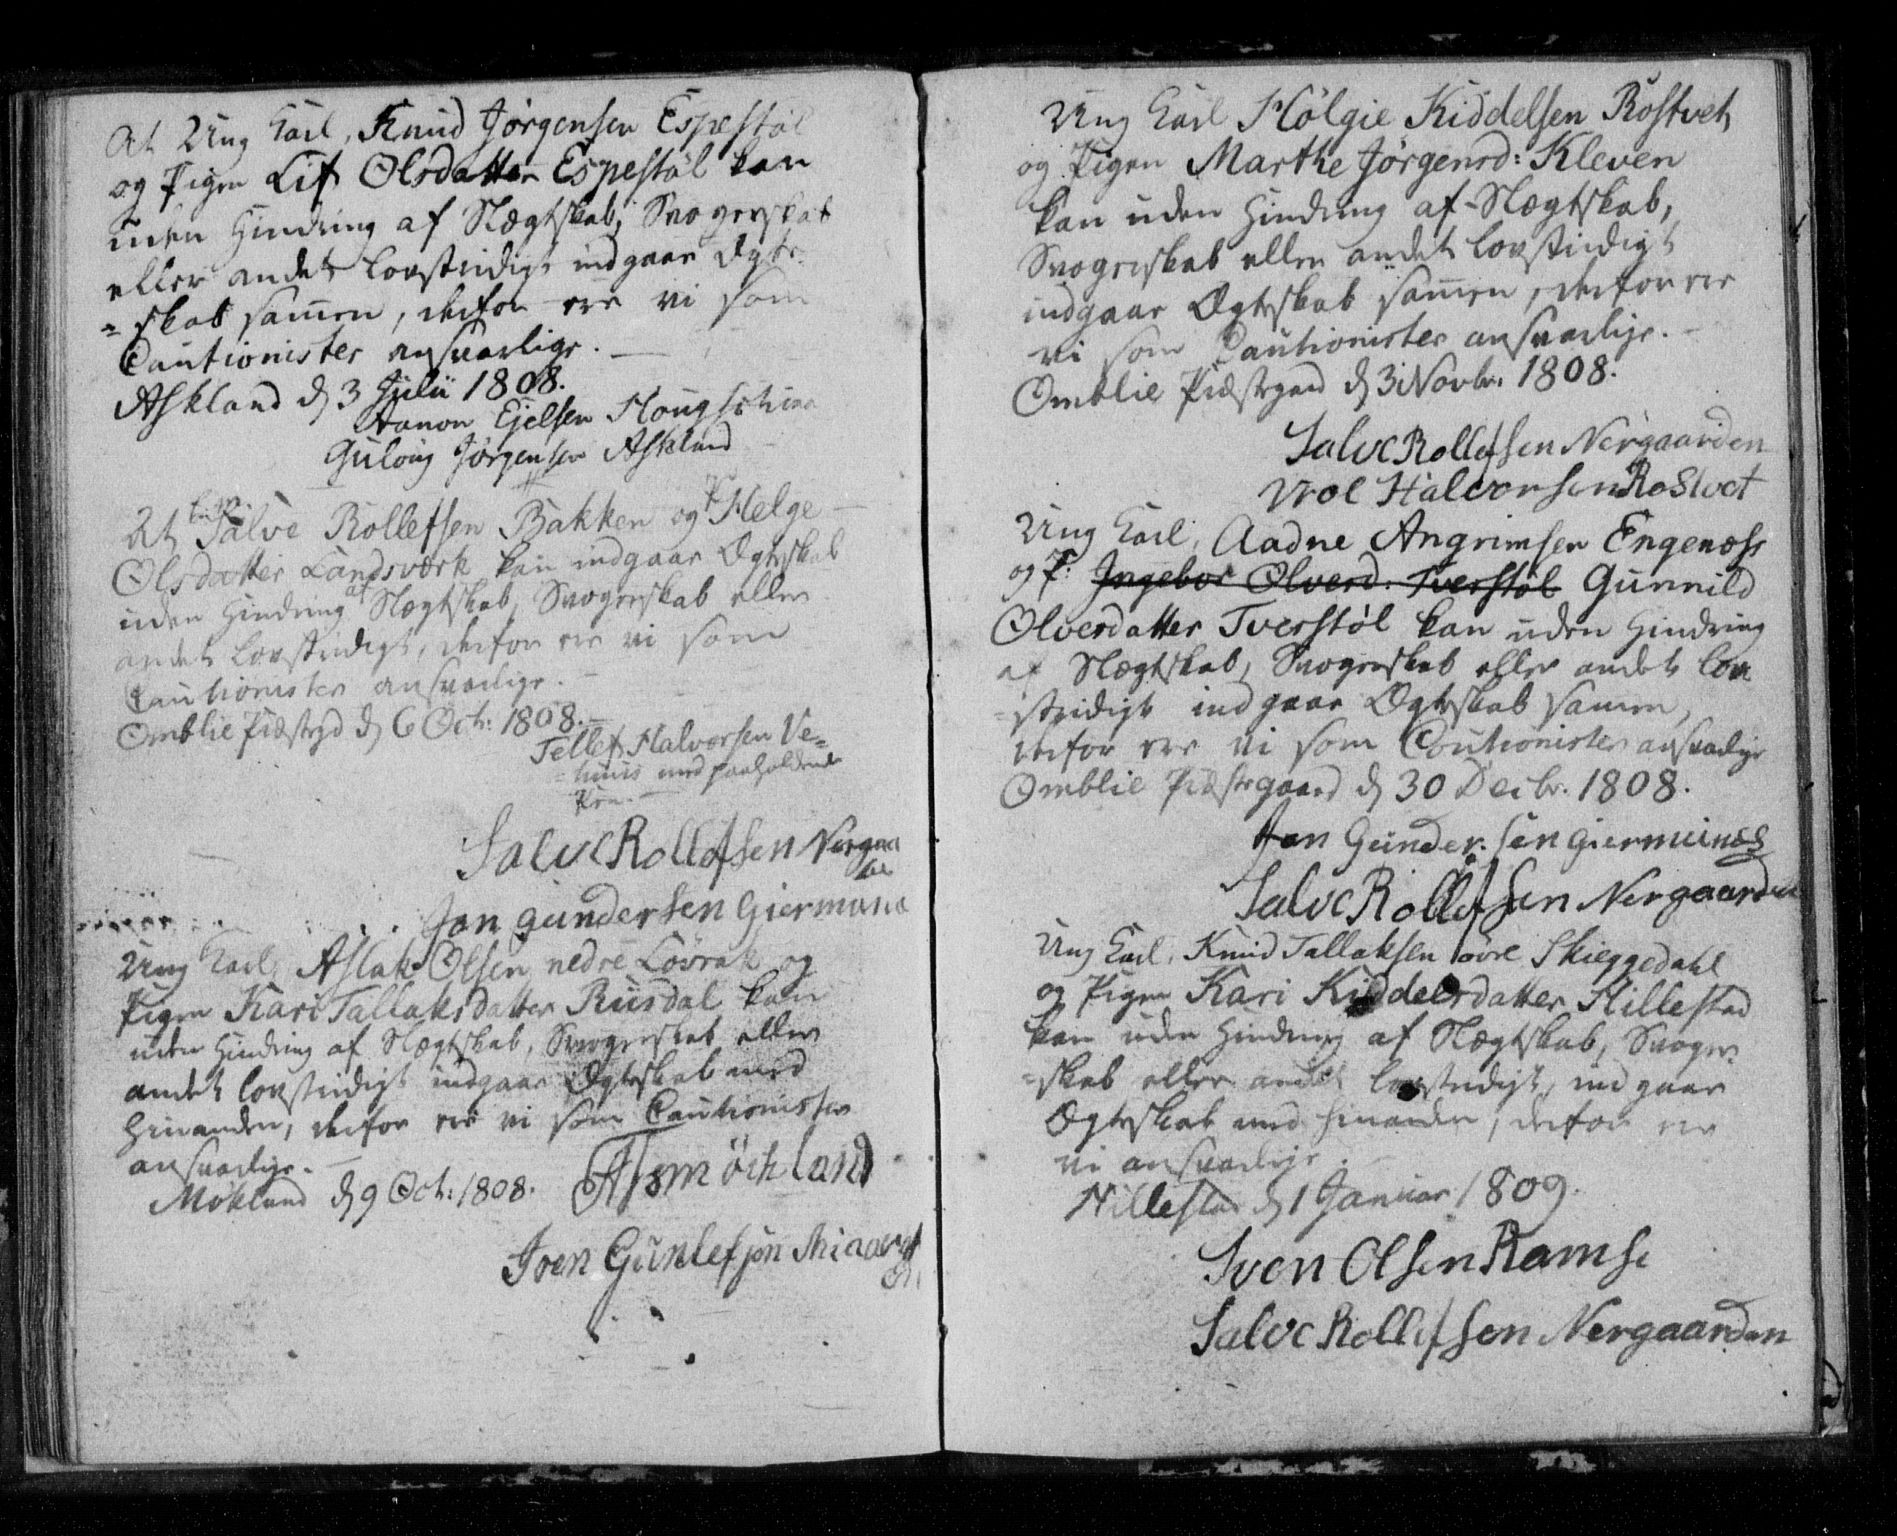 At Ung Karl, Knud Jørgensen Espestøl
og Pigen Lif Olsdatter Espestøl kan
uden Hindring af Slægtskab, Svogerskab
eller andet lovstridigt indgaae Ægte-
= skab samen, derfor ere vi som
Cautionister ansvarlige. —
Askland d 3 Julii 1808.
Aanon Ejelsen
Gulovig Jørgensen Askland
At Salve Rollefsen Bakken og P Helge
Olsdatter Landsværk kan indgaae Ægteskab
uden Hindring af Slægtskab, Svogerskab eller
andet lovstridigt, derfor ere vi som
Cautionister ansvarlige. —
Omblie Præstegd d 6 Oct: 1808. —
Tellef Halvorsen Ve=
= huus med paaholdende
Pen. —
Salve Rollefsen Nergaa
den
Jon gundersen Giermonæ
Ung Karl, Aslak Olsen nedre Lövrak og
Pigen Kari Tallaksdatter Riisdal kan
uden Hindring af Slægtskab, Svogerskab eller
andet lovstridigt indgaae Ægteskab med
Hinanden, derfor ere vi som Cautionister
ansvarlige. —
Mökland d 9 Oct: 1808.
Iven Gunlefsøn
Ung Karl Hölgie Kiddelsen Röstvet
og Pigen Marthe Jørgensd: Kleven
kan uden Hindring af Slægtskab,
Svogerskab eller andet lovstridigt
indgaae Ægteskab samen, derfor ere
vi som Cautionister ansvarlige. —
Omblie Præstegaard d 3 Novbr. 1808.
Salve Rollefsen Nergaarden
Vrol Halvorsen Rostvet
Ung Karl, Aadne Angrimsen Engenæss
og P: Ingebor Olversd. Tverstøl Gunnild
Olversdatter Tverstøl kan uden Hindring
af Slægtskab, Svogerskab eller andet lov
= stridigt indgaae Ægteskab samen,
derfor ere vi som Cautionister ansvarlige
Omblie Præstegaard d 30 Decbr. 1808.
Jon Gunder:sen giermuinæs
Salve Rollefsen Nergaarden
Ung Karl, Knud Tallaksen øvre Skieggedahl
og Pigen Kari Kiddelsdatter Hillestad
kan uden Hindring af Slægtskab, Svoger
= skab eller andet lovstridigt, indgaae
Ægteskab med hinanden, derfor ere
vi ansvarlige. —
Hillestad d 1 Januar 1809.
Sven Olsen Ramse
Salve Rollefsen Nergaarden